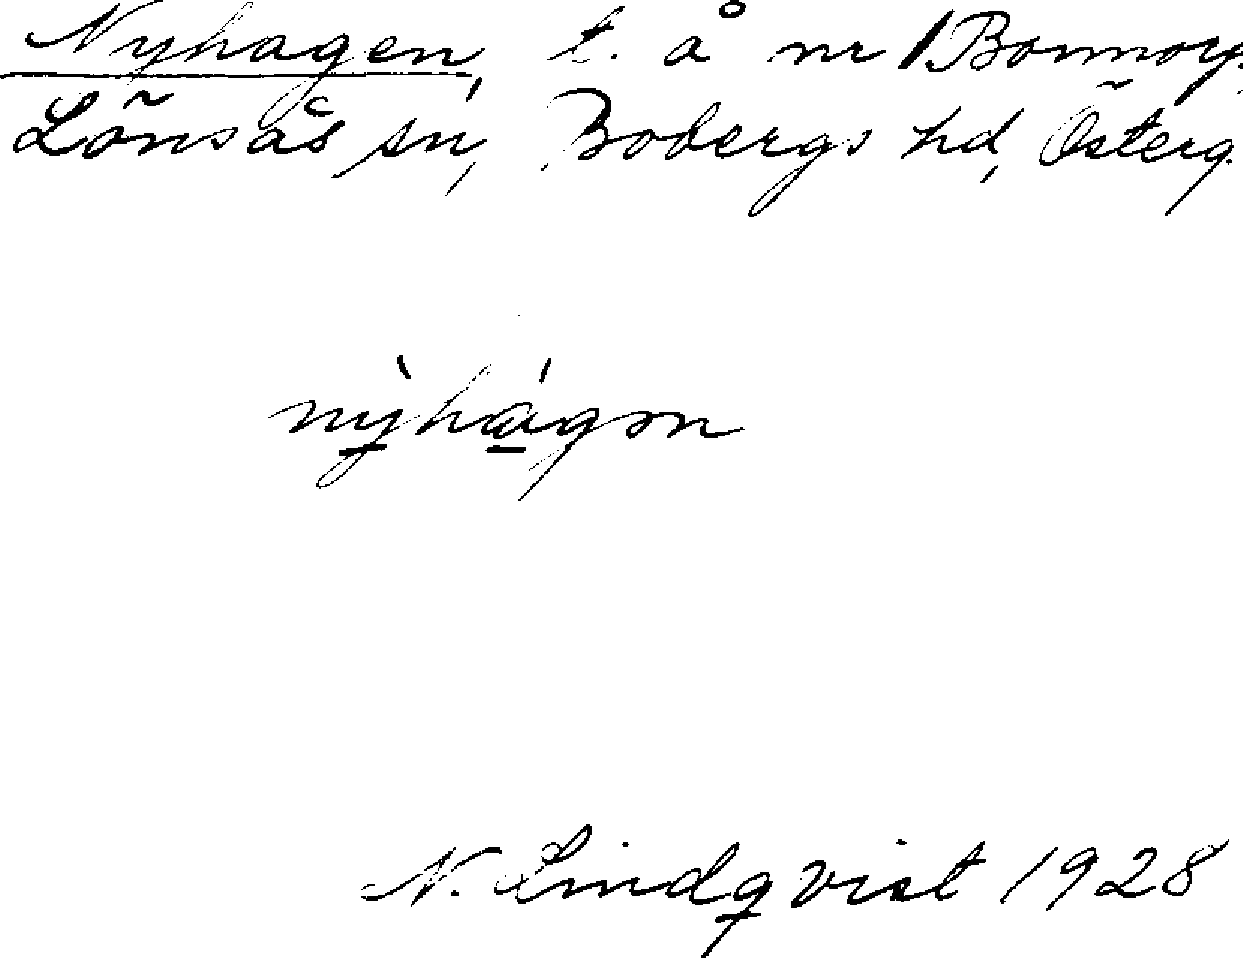 Nyhagen, t. å nr 1 Bonnorp,
Lönsås sn, Bobergs hd, Österg.
nỳhágən
N. Lindqvist 1928